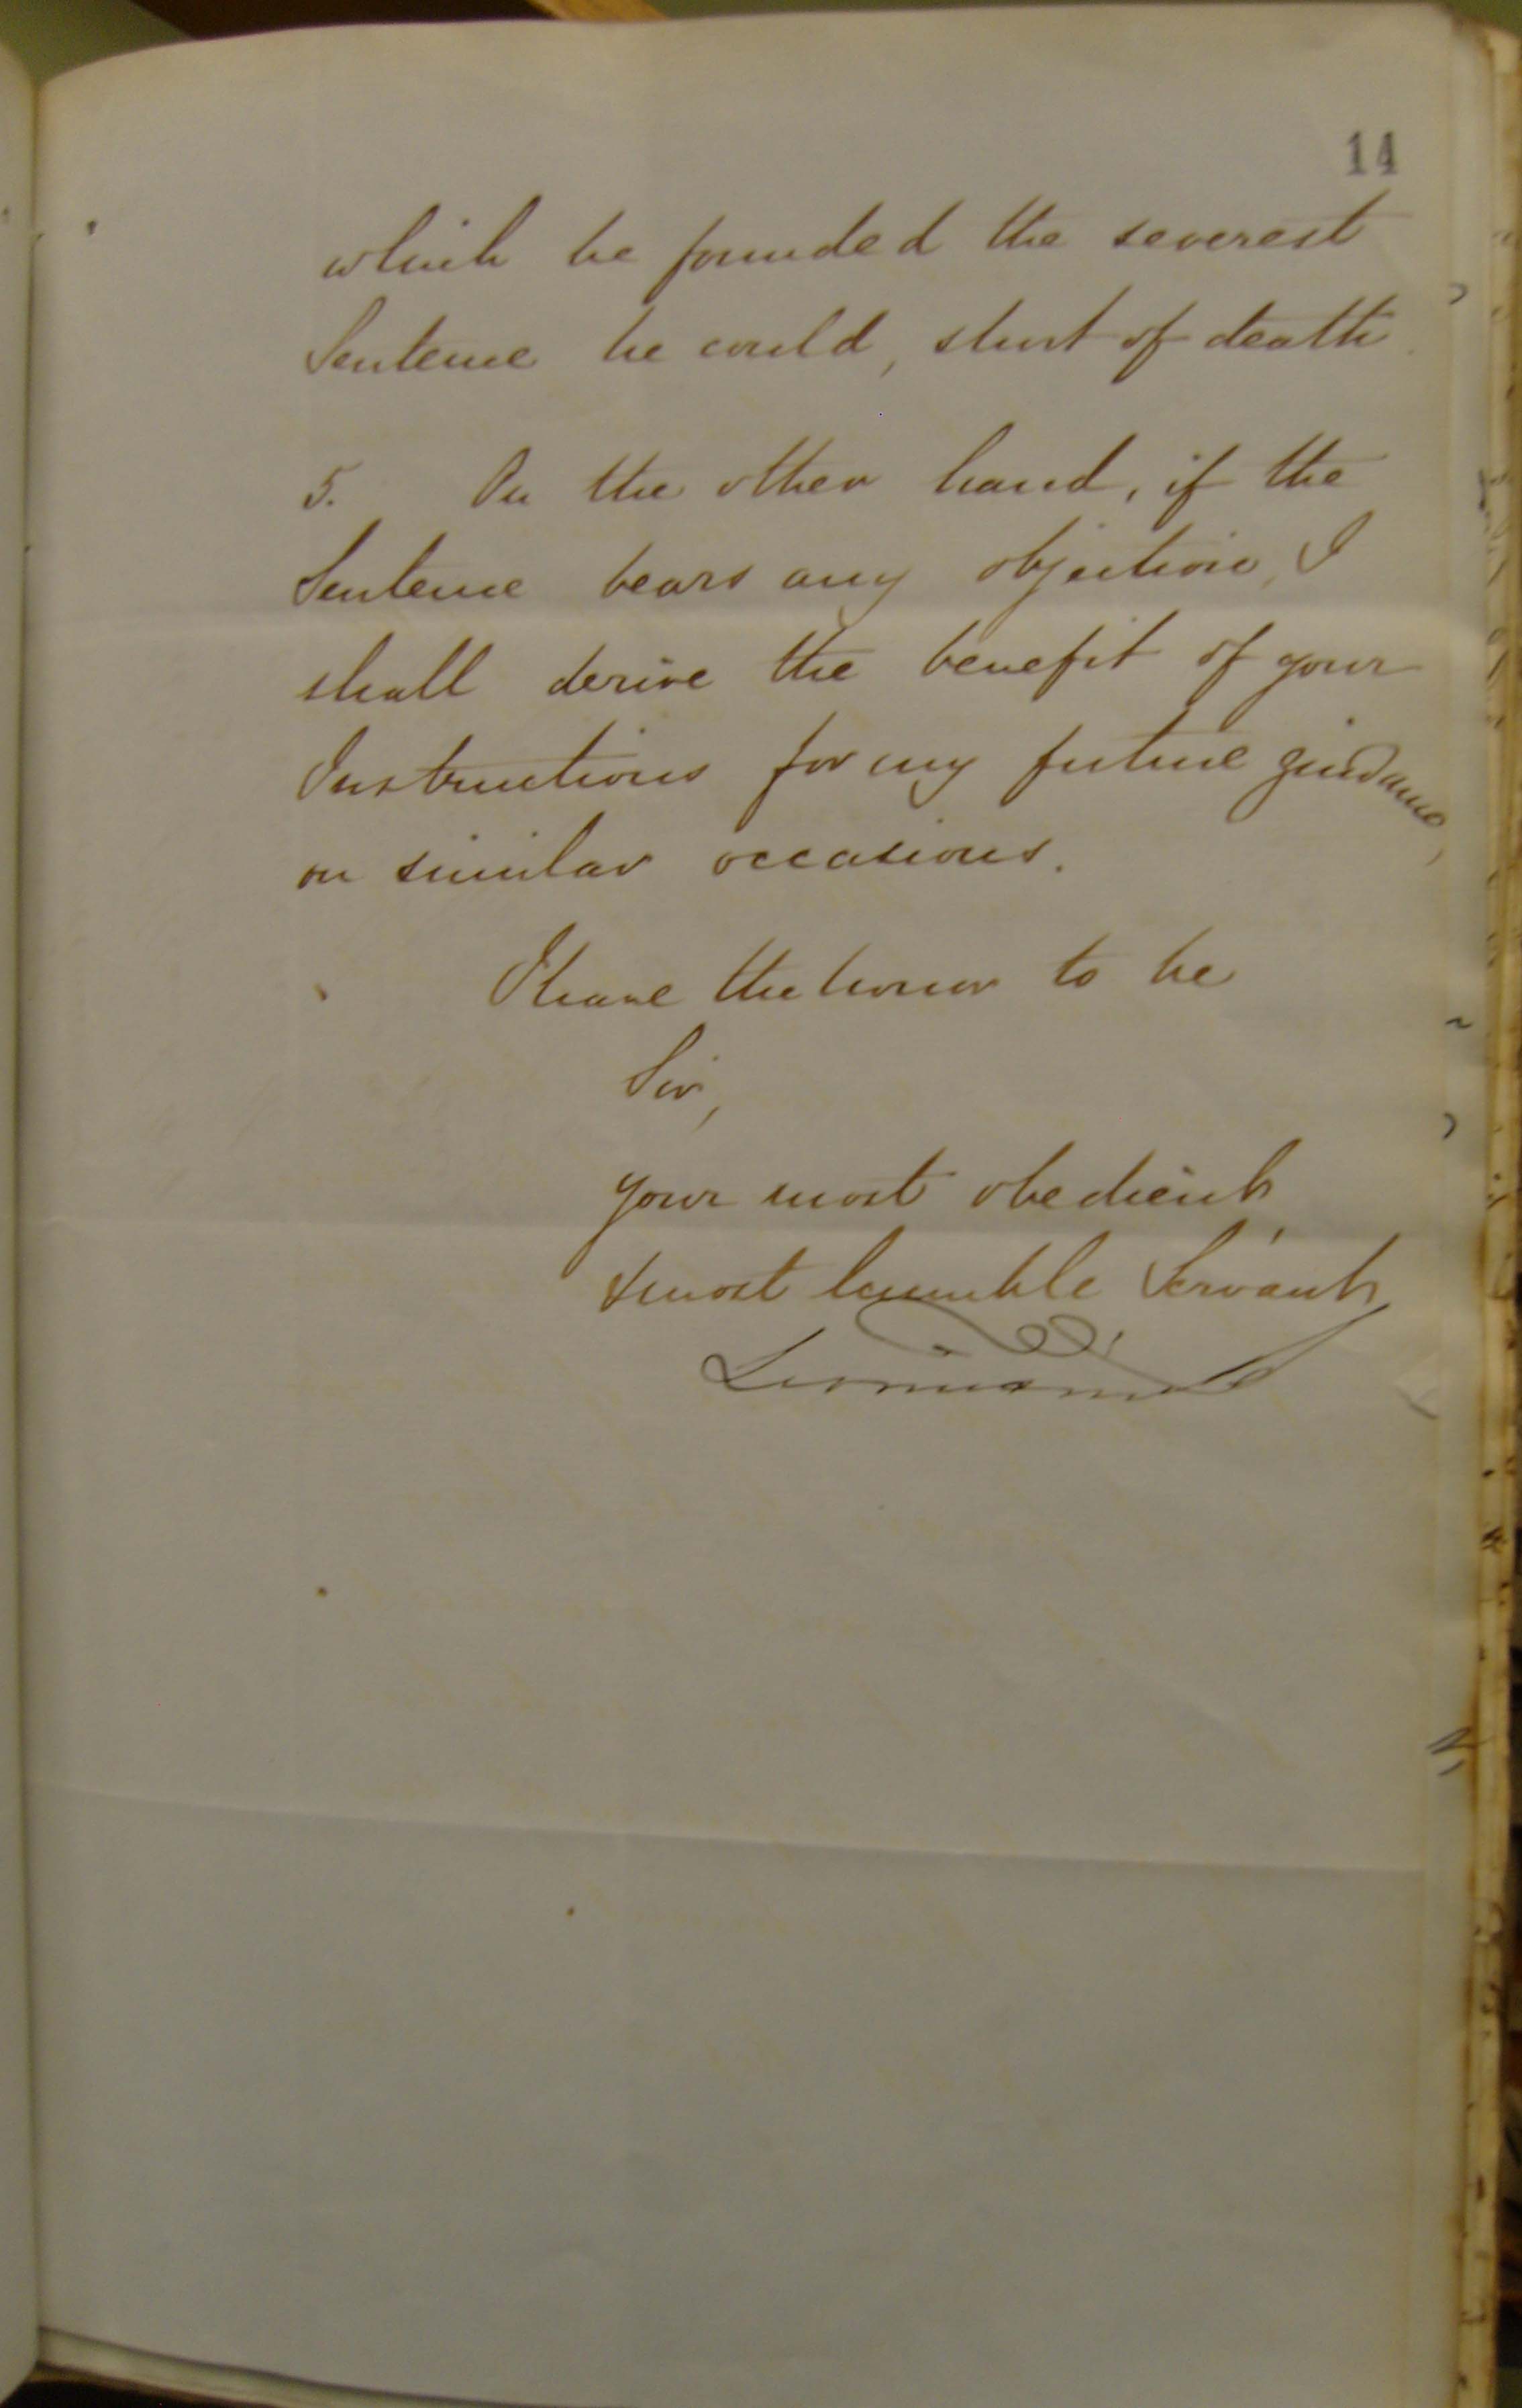 14
which he founded the severest
Sentence he could, short of death.
5. On the other hand, if the
Sentence bears any objection, I
shall derive the benefit of your
Instructions for my future guidance,
on similar occasions.
I have the honor to be
Sir,
your most obedient,
& most humble Servant,